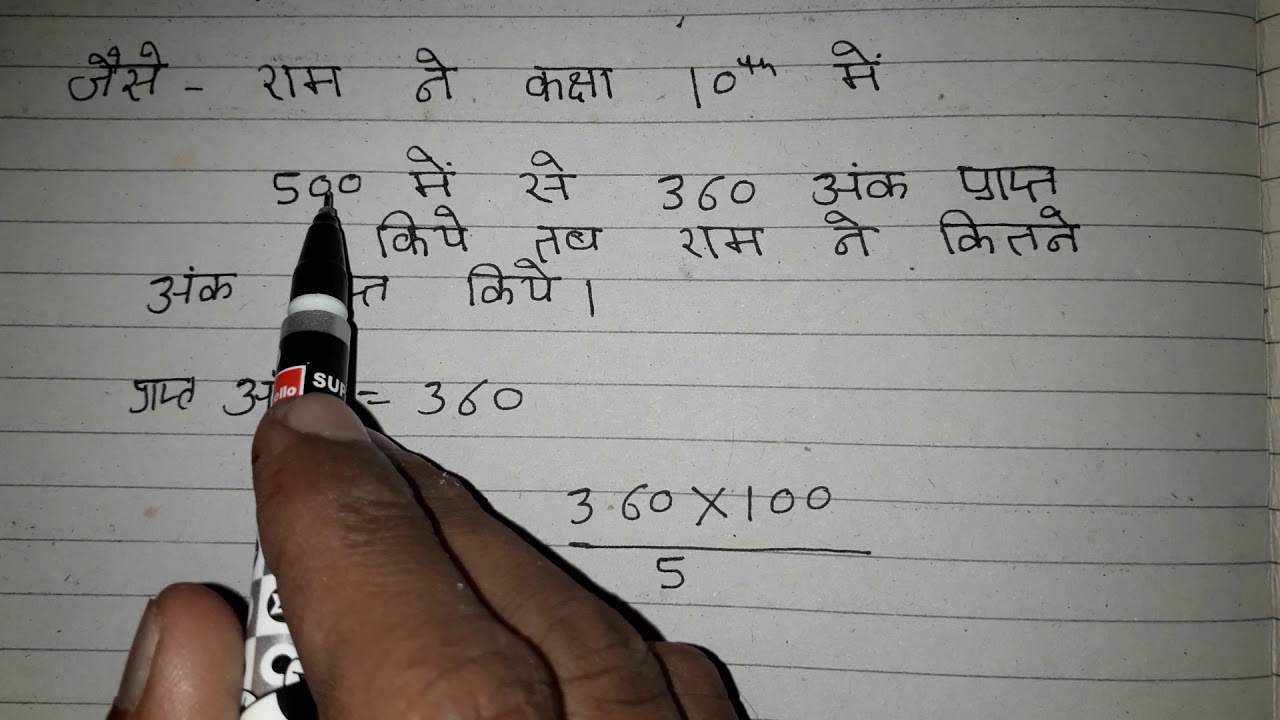 जैसे - राम ने कक्षा 10th में
500 में से 360 अंक प्राप्त
किये तब राम ने कितने
अंक किये।
प्राप्त = 360
360 X 100
5